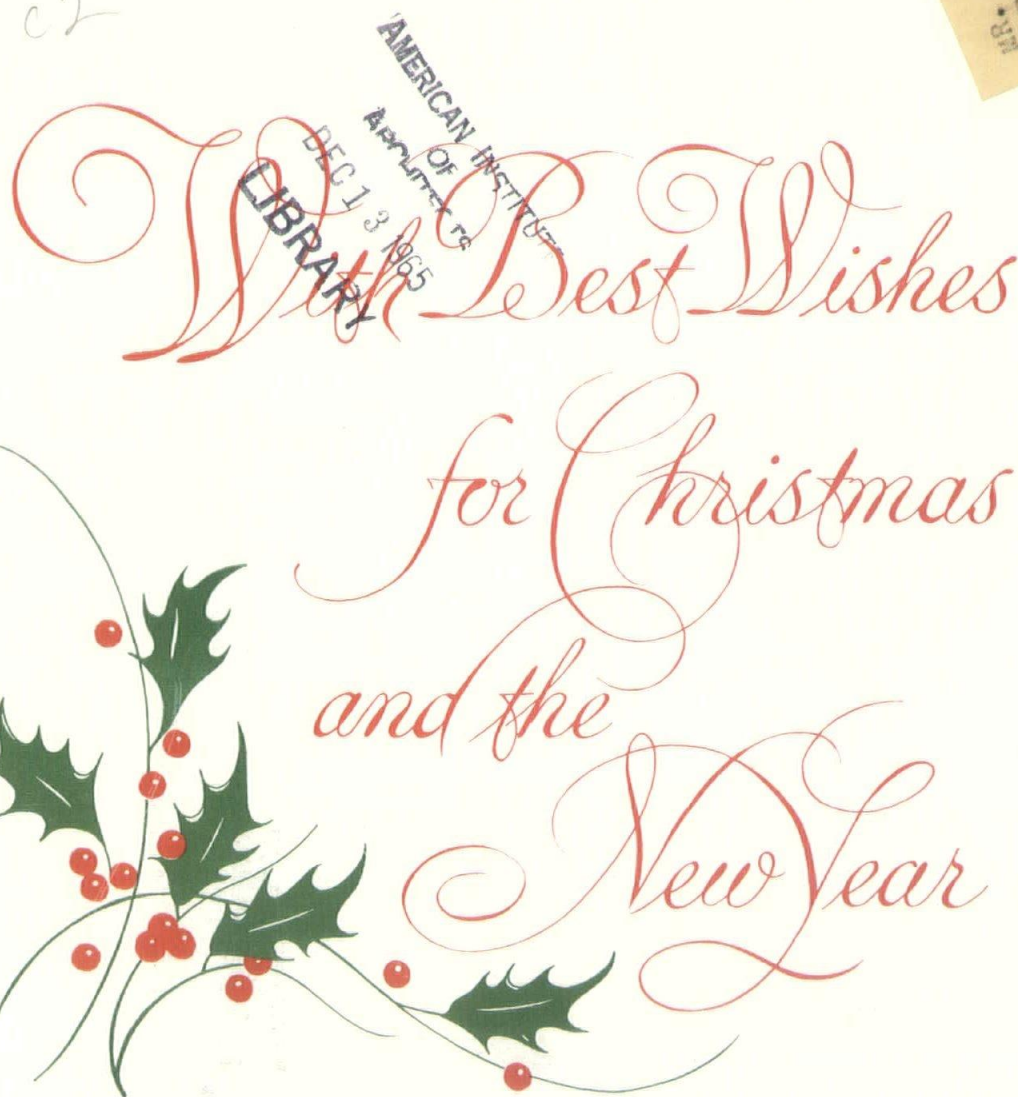 c2
MR.
AMERICAN INSTITUTE
OF
ARCHITECTS
DEC 13 1965
LIBRARY
With Best Wishes
for Christmas
and the
New Year